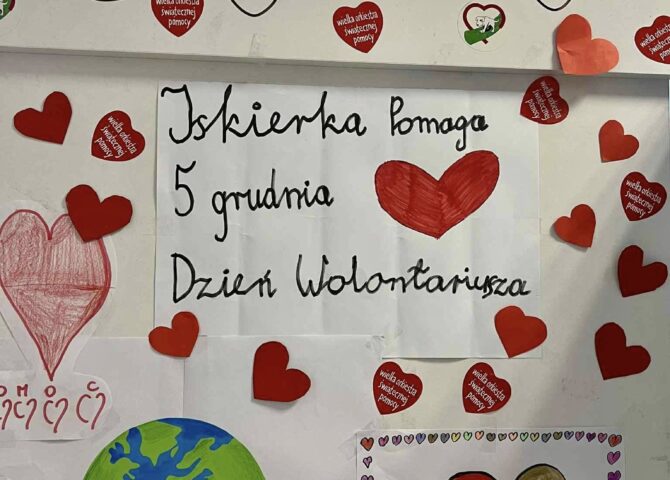 wielka orkiestra
świątecznej
pomocy
wielka orkiestra
świątecznej
pomocy
wielka orkiestra
świątecznej
pomocy
Iskierka Pomaga
5 grudnia
Dzień Wolontariusza
wielka orkiestra
świątecznej
pomocy
wielka orkiestra
świątecznej
pomocy
wielka orkiestra
świątecznej
pomocy
wielka orkiestra
świątecznej
pomocy
wielka orkiestra
świątecznej
pomocy